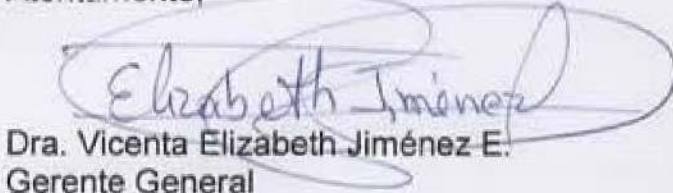 Atentamente,
Elizabeth Jiménez
Dra. Vicenta Elizabeth Jiménez E.
Gerente General